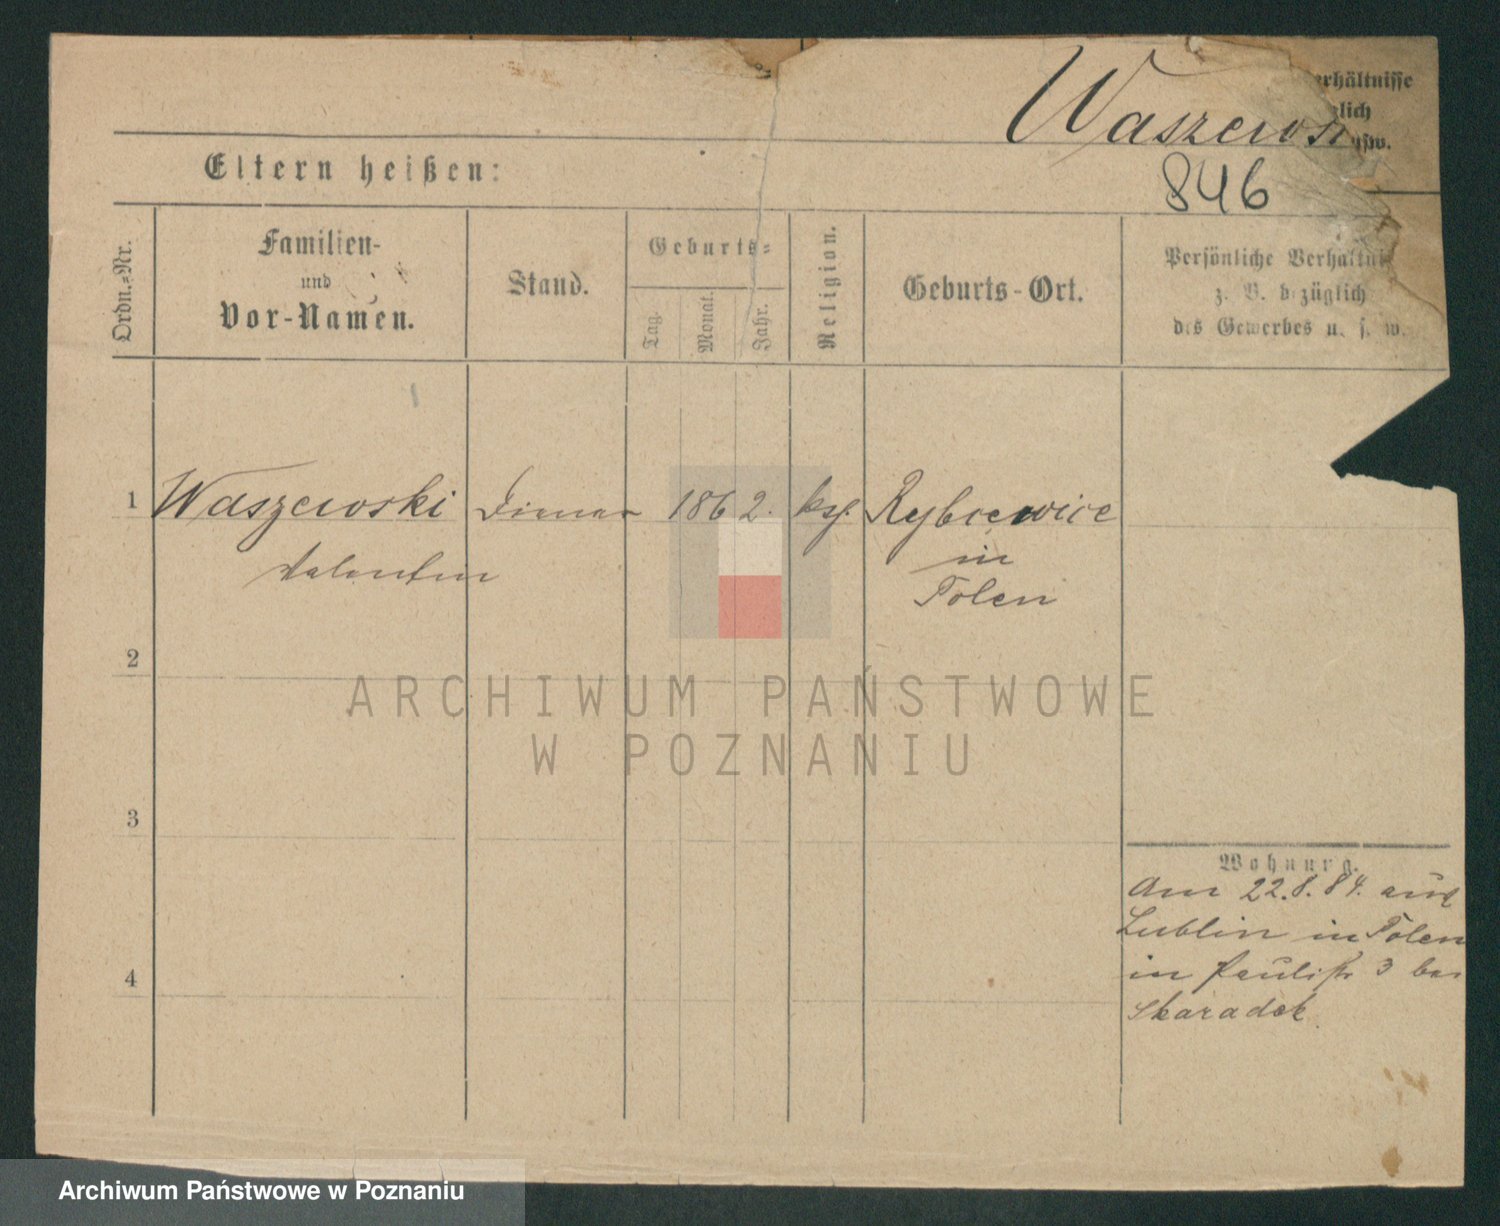 Waszewsk
erhältnisse
glich
usw.
Eltern heißen:
846
Ordn.-Nr.
Familien-
und
Vor-Namen.
Stand.
Geburts-
Tag.
Monat.
Jahr.
Religion.
Geburts-Ort.
Persönliche Verhältni
z. B. bezüglich
des Gewerbes u. s. w.
1 Waszewski Diener 1862. ksl. Rybcewice
Valentin in
Polen
2
ARCHIWUM PAŃSTWOWE
W POZNANIU
3
Wohnung.
Am 22.8.84. aus
Lublin in Polen
in Paulistr 3 bei
Skaradek
4
Archiwum Państwowe w Poznaniu